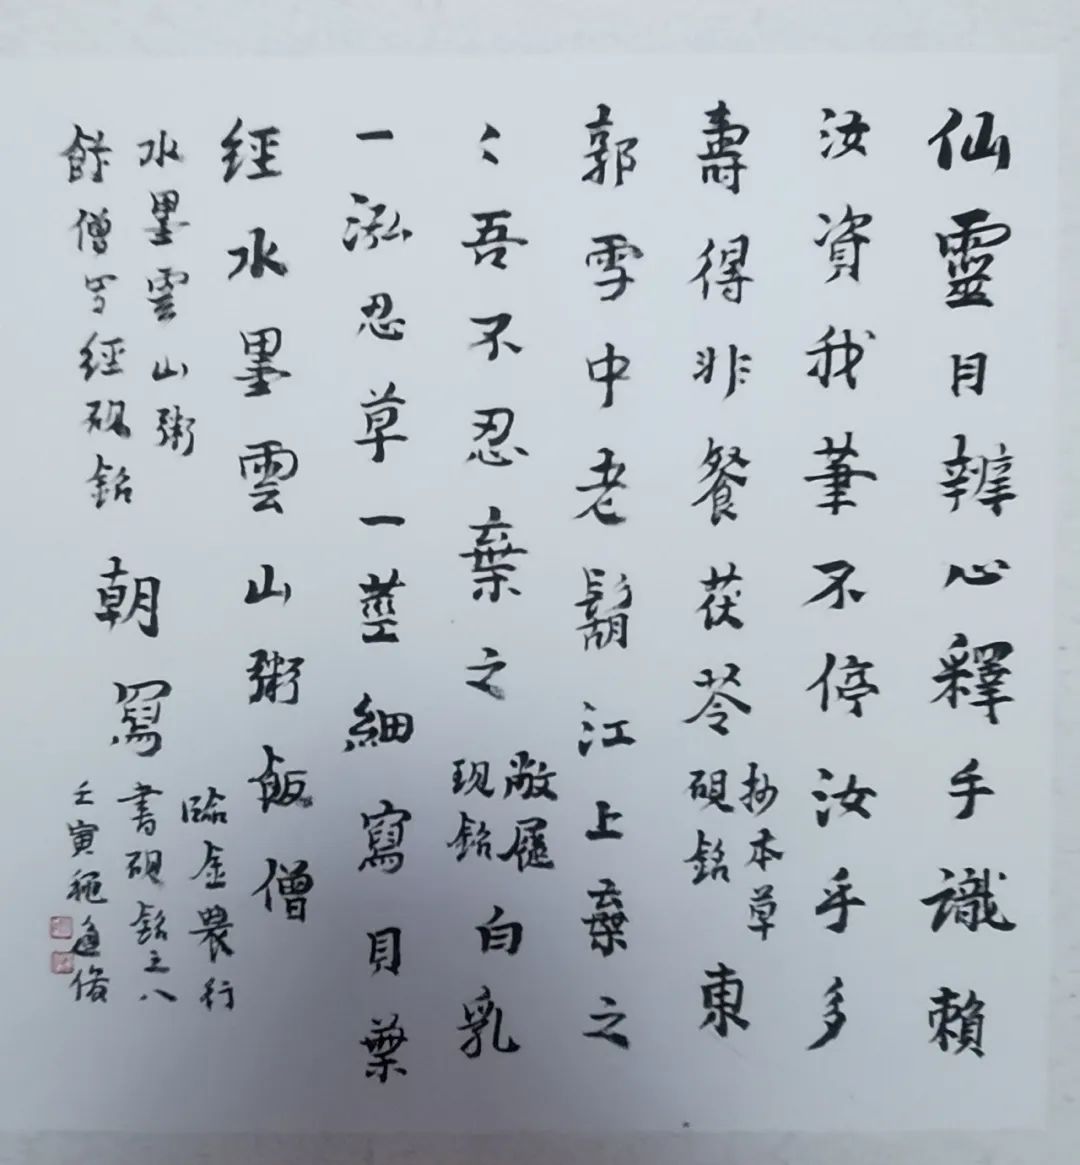 仙靈目辨心釋手識賴
汝資我筆不停汝手多
壽得非餐茯苓
抄本草
硯銘
東
郭雪中老鬍江上棄之
〻吾不忍棄之
敝屣
硯銘
白乳
一泓忍草一莖細寫貝葉
經水墨雲山粥飯僧
水墨雲山粥
飯僧寫經硯銘
朝寫
臨金農行
書硯銘之八
壬寅